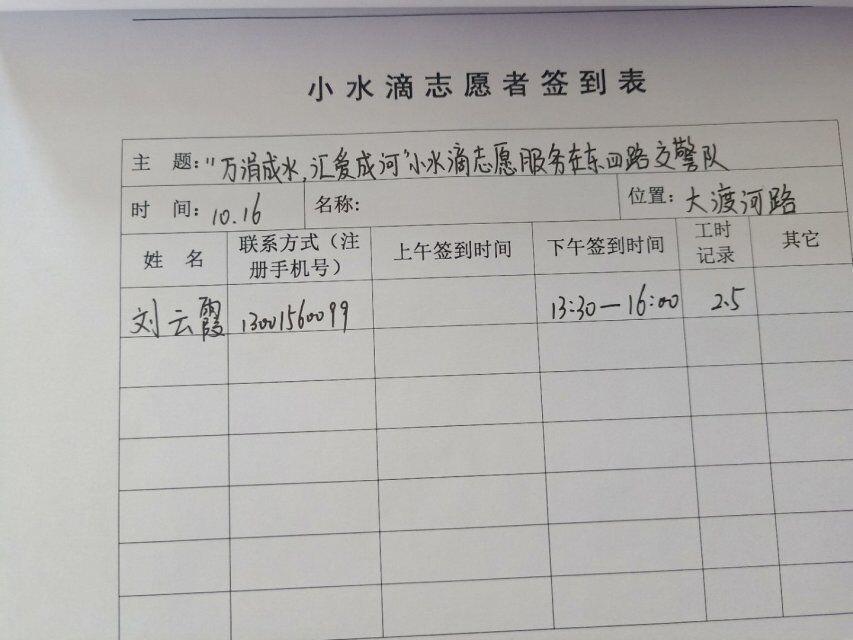 小水滴志愿者签到表
主 题:"万涓成水,汇爱成河"小水滴志愿服务在东四路交警队
时 间:10.16 名称: 位置:大渡河路
姓 名 联系方式(注册手机号) 上午签到时间 下午签到时间 工时记录 其它
刘云霞 13001560099 13:30—16:00 2.5